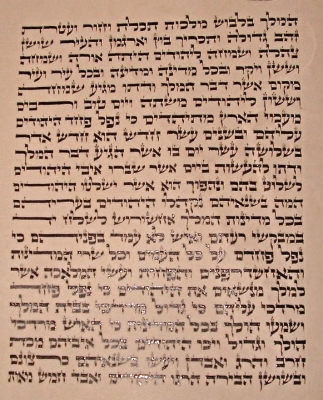 המלך בלבוש מלכות תכלת וחור ועטרת
זהב גדולה ותכריך בוץ וארגמן והעיר שושן
צהלה ושמחה ליהודים היתה אורה ושמחה
וששן ויקר ובכל מדינה ומדינה ובכל עיר ועיר
מקום אשר דבר המלך ודתו מגיע שמחה
וששון ליהודים משתה ויום טוב ורבים
מעמי הארץ מתיהדים כי נפל פחד היהודים
עליהם ובשנים עשר חדש הוא חדש אדר
בשלושה עשר יום בו אשר הגיע דבר המלך
ודתו להעשות ביום אשר שברו איבי היהודים
לשלוט בהם ונהפוך הוא אשר ישלטו היהודים
המה בשנאיהם נקהלו היהודים בעריהם
בכל מדינות המלך אחשורוש לשלח יד
במבקשי רעתם ואיש לא עמד בפניהם כי
נפל פחדם על כל העמים וכל שרי המדינות
והאחשדרפנים והפחות ועשי המלאכה אשר
למלך מנשאים את היהודים כי נפל פחד
מרדכי עליהם כי גדול מרדכי בבית המלך
ושמעו הולך בכל המדינות כי האיש מרדכי
הולך וגדול ויכו היהודים בכל איביהם מכת
חרב והרג ואבדן ויעשו בשנאיהם כרצונם
ובשושן הבירה הרגו היהודים ואבד חמש מאות